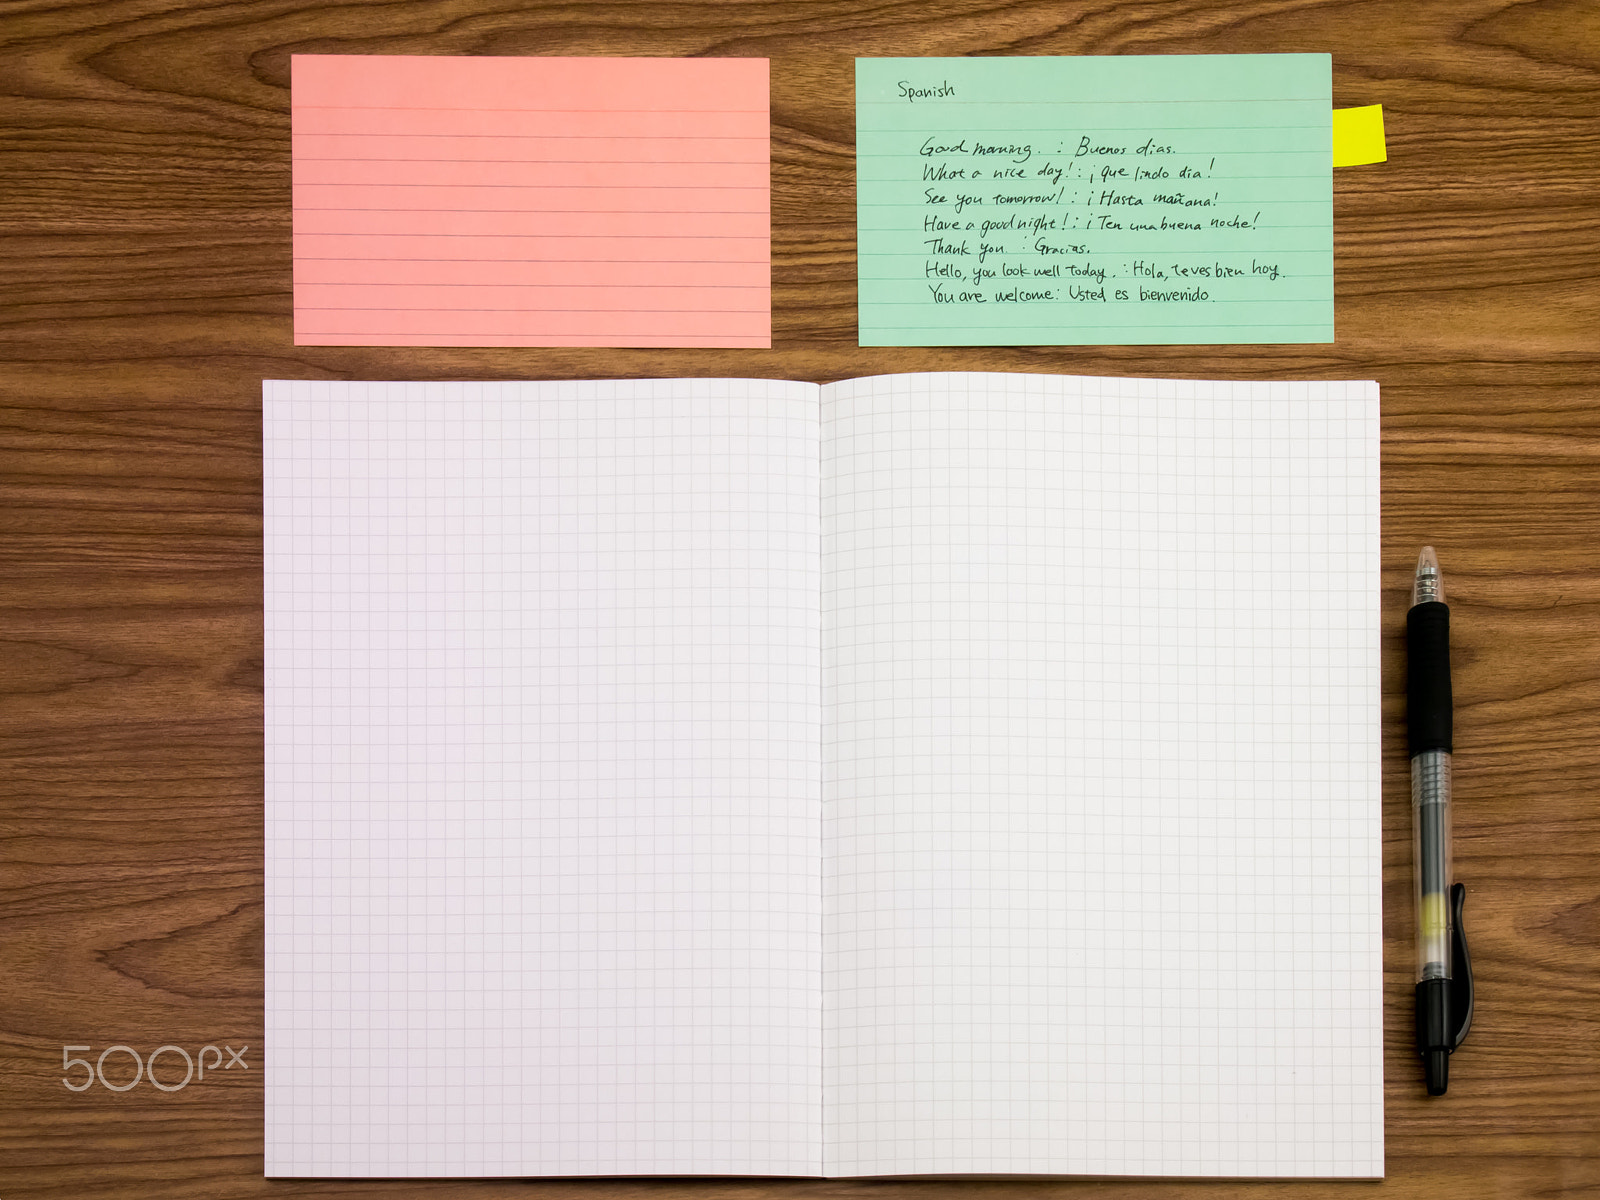 Spanish
Good morning. : Buenos dias.
What a nice day! : ¡que lindo dia!
See you tomorrow! : ¡Hasta mañana!
Have a good night! : ¡Ten una buena noche!
Thank you : Gracias.
Hello, you look well today. : Hola, te ves bien hoy.
You are welcome : Usted es bienvenido.
500px